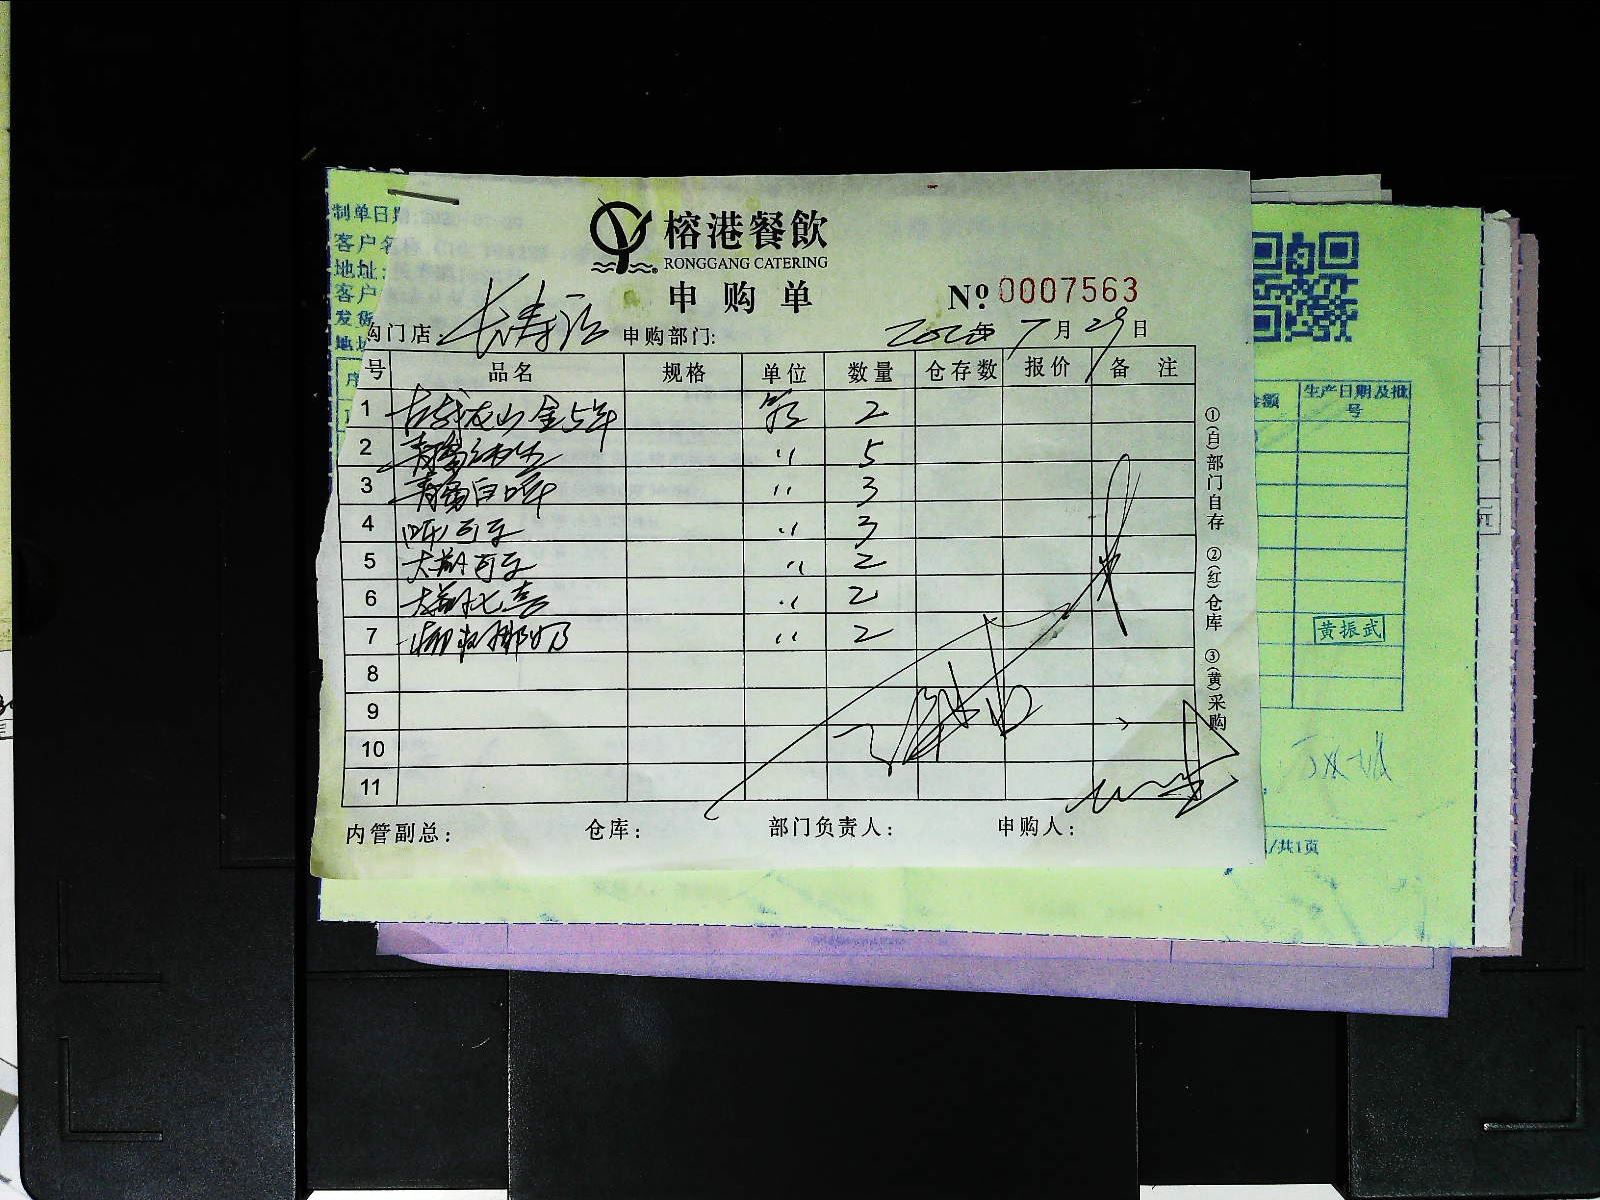 制单日期
客户名称
地址:
客户
发货
地址
榕港餐飲
RONGGANG CATERING
申购单
No 0007563
购门店: 长寿路 申购部门: 2020年7月29日
号 品名 规格 单位 数量 仓存数 报价 备注
1 古越龙山金5年 箱 2
2 青岛纯生 〃 5
3 青岛白啤 〃 3
4 听可乐 〃 3
5 大瓶可乐 〃 2
6 大瓶七喜 〃 2
7 椰树椰奶 〃 2
8
9
10
11
内管副总: 仓库: 部门负责人: 申购人:
①(白)部门自存 ②(红)仓库 ③(黄)采购
金额 生产日期及批号
元
黄振武
/共1页